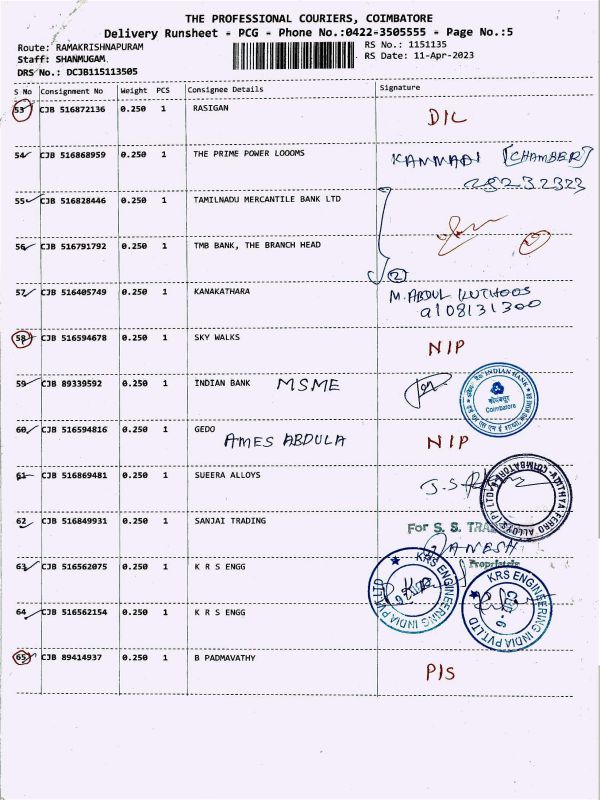 THE PROFESSIONAL COURIERS, COIMBATORE
Delivery Runsheet - PCG - Phone No.:0422-3505555 - Page No.:5
Route: RAMAKRISHNAPURAM
RS No.: 1151135
Staff: SHANMUGAM
RS Date: 11-Apr-2023
DRS No.: DCJB115113505
S No Consignment No Weight PCS Consignee Details Signature
53 CJB 516872136 0.250 1 RASIGAN D/L
54 CJB 516868959 0.250 1 THE PRIME POWER LOOOMS [CHAMBER]
55 CJB 516828446 0.250 1 TAMILNADU MERCANTILE BANK LTD
56 CJB 516791792 0.250 1 TMB BANK, THE BRANCH HEAD
2
57 CJB 516405749 0.250 1 KANAKATHARA M. ABDUL KUTHOOS
9108131300
58 CJB 516594678 0.250 1 SKY WALKS N/P
59 CJB 89339592 0.250 1 INDIAN BANK MSME
INDIAN BANK
Coimbatore
60 CJB 516594816 0.250 1 GEDO N/P
AMES ABDULA
61 CJB 516869481 0.250 1 SUEERA ALLOYS
ADITHYA FERRO ALLOYS (P) LTD COIMBATORE
62 CJB 516849931 0.250 1 SANJAI TRADING
For S. S.
GANESH
63 CJB 516562075 0.250 1 K R S ENGG
KRS ENGINEERING INDIA PVT.LTD
64 CJB 516562154 0.250 1 K R S ENGG
KRS ENGINEERING INDIA PVT.LTD
65 CJB 89414937 0.250 1 B PADMAVATHY P/S